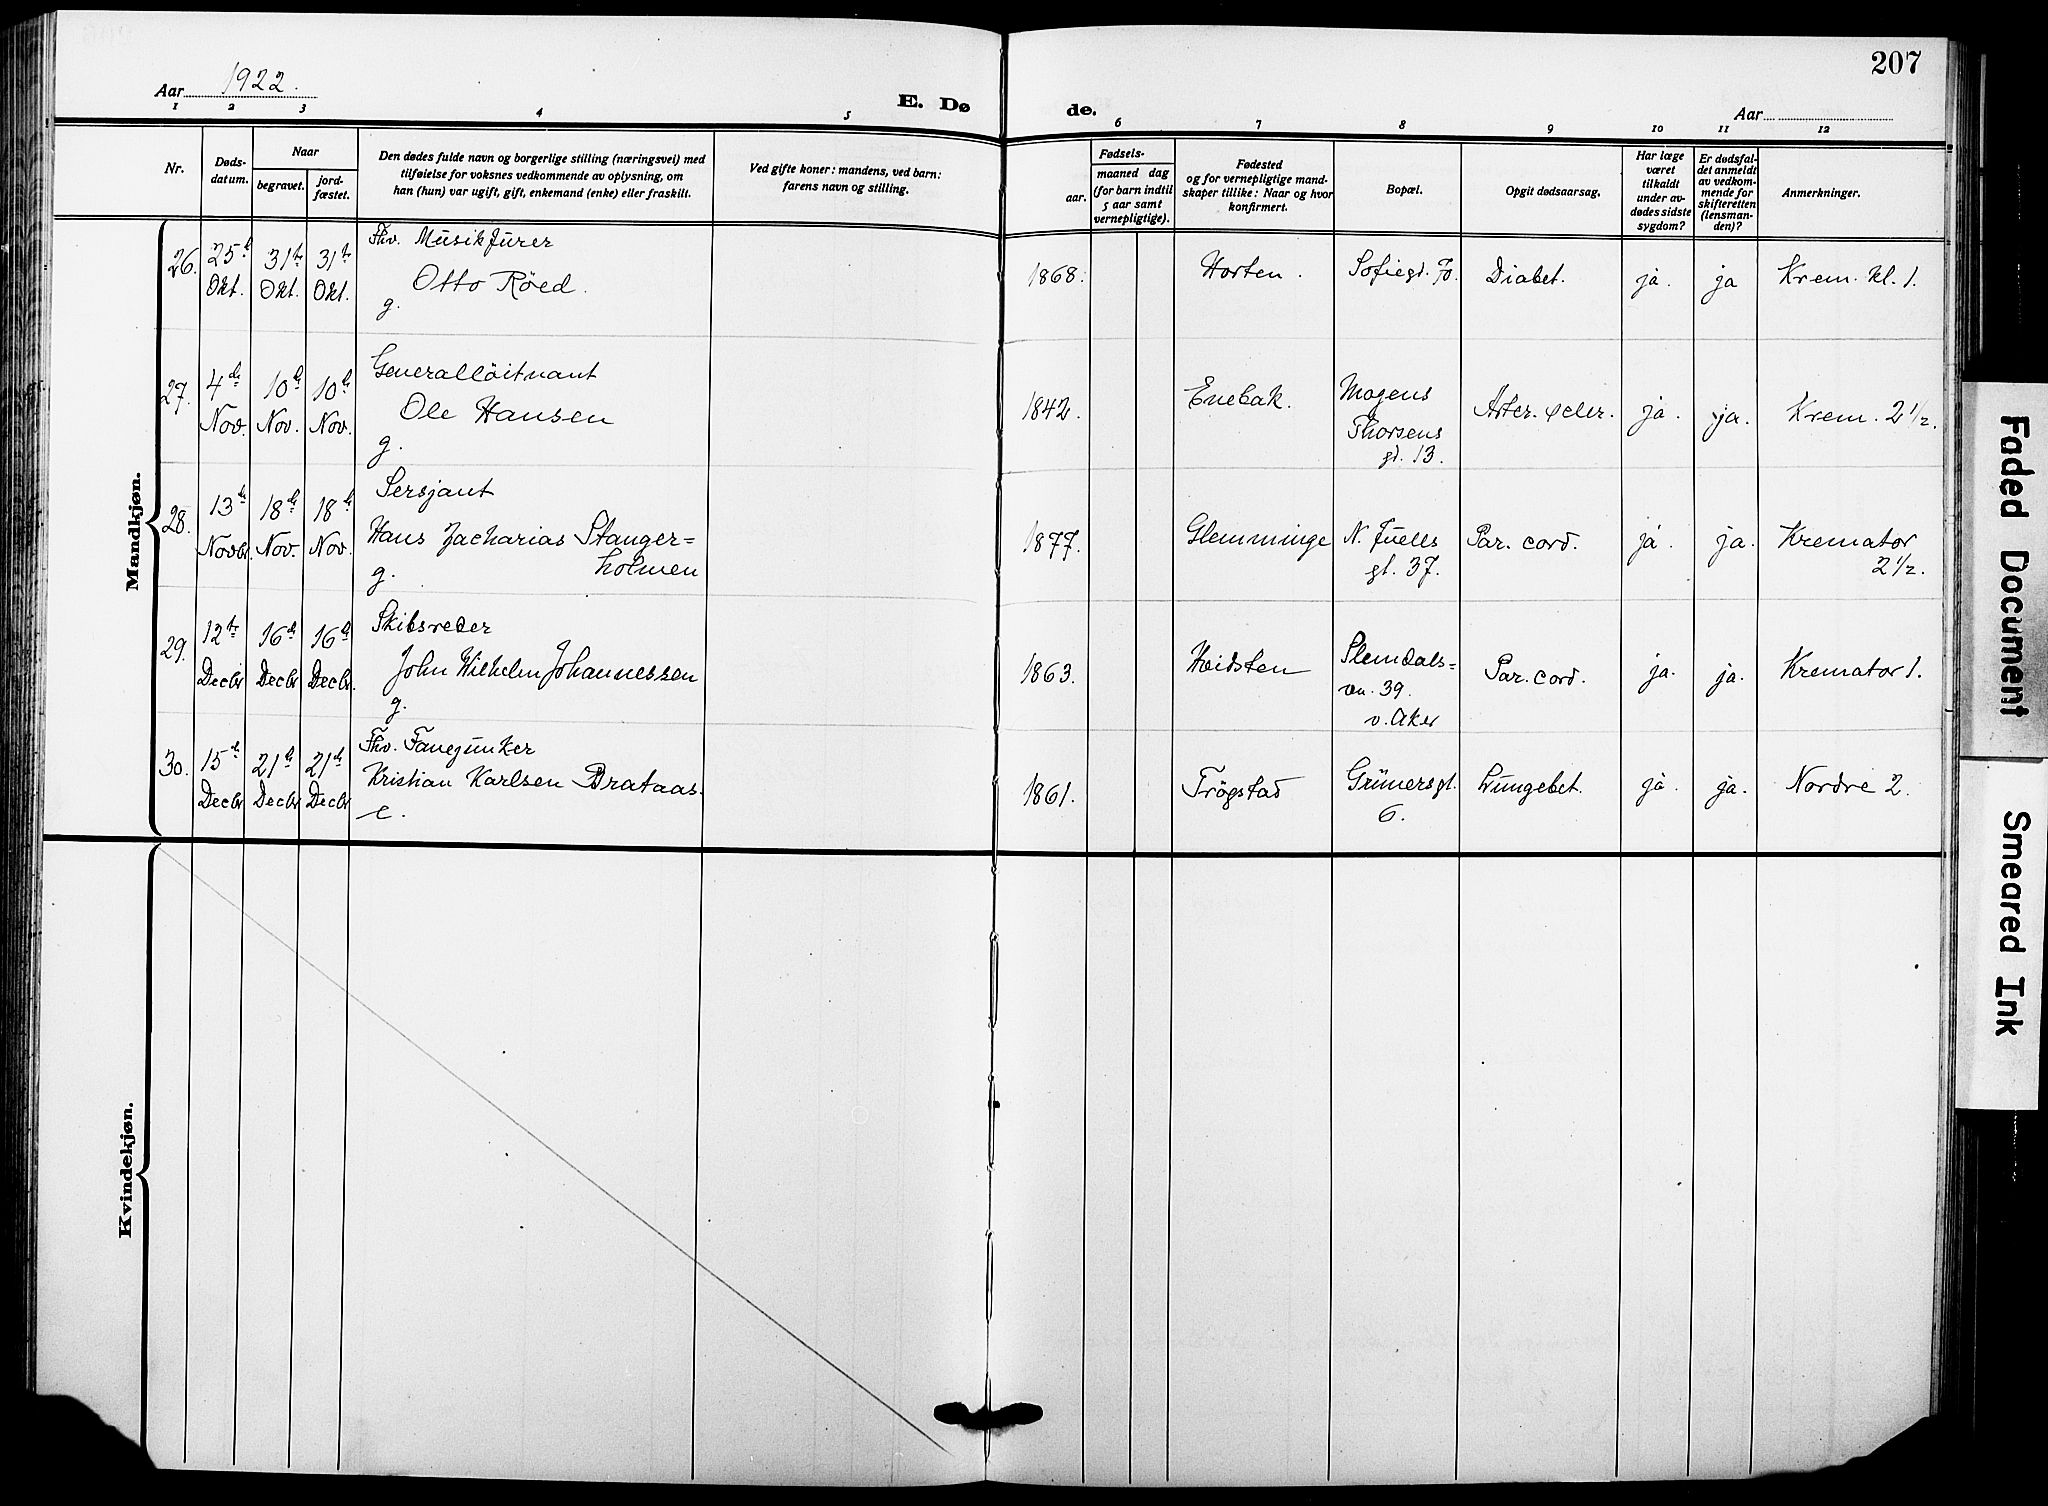 207
Aar 1922.
E. Døde.
Aar
1 2 3 4 5 6 7 8 9 10 11 12
Nr.
Døds-
datum.
Naar
begravet.
jord-
fæstet.
Den dødes fulde navn og borgerlige stilling (næringsvei) med
tilføielse for voksnes vedkommende av oplysning, om
han (hun) var ugift, gift, enkemand (enke) eller fraskilt.
Ved gifte koner: mandens, ved barn:
farens navn og stilling.
Fødsels-
aar.
maaned dag
(for barn indtil
5 aar samt
vernepligtige).
Fødested
og for vernepligtige mand-
skaper tillike: Naar og hvor
konfirmert.
Bopæl.
Opgit dødsaarsag.
Har læge
været
tilkaldt
under av-
dødes sidste
sygdom?
Er dødsfal-
det anmeldt
av vedkom-
mende for
skifteretten
(lensman-
den)?
Anmerkninger.
Mandkjøn.
26. 25 Okt. 31te Okt. 31te Okt.
Fhv. Musikfurer
Otto Röed.
g.
1868. Horten. Sofiegt. 70. Diabet. ja. ja Krem. kl. 1.
27. 4de Nov. 10de Nov. 10de Nov.
Generallöitnant
Ole Hansen
g.
1842. Enebak.
Mogens
Thorsens
gt. 13.
Arter. scler. ja. ja. Krem. 2 1/2.
28. 13de Novbr 18de Nov. 18de Nov.
Sersjant
Hans Zacharias Stanger=
holmen
g.
1877. Glemminge
N. Juells
gt. 37.
Par. cord. ja. ja.
Kremator
2 1/2.
29. 12te Decbr 16de Decbr 16de Decbr.
Skibsreder
John Wilhelm Johannessen
g.
1863. Heidsten
Slemdals=
vn. 39.
v. Aker
Par. cord. ja. ja. Kremator 1.
30. 15de Decbr 21de Decbr 21de Decbr
Fhv. Fanejunker
Kristian Karlsen Brataas.
e.
1861. Trögstad
Grünersgt.
6.
Lungebet. ja. ja. Nordre 2.
Kvindekjøn.
Faded Document
Smeared Ink